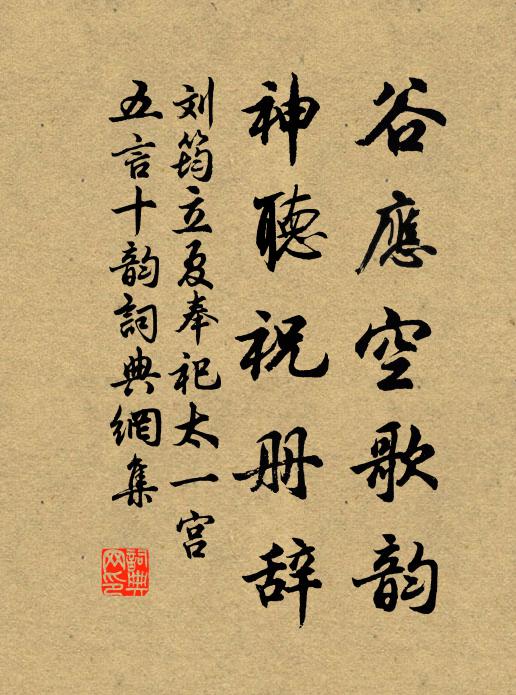 谷應空歌韵
神聽祝册辞
刘筠立夏奉祀太一宫
五言十韵詞典網集
詞典网印